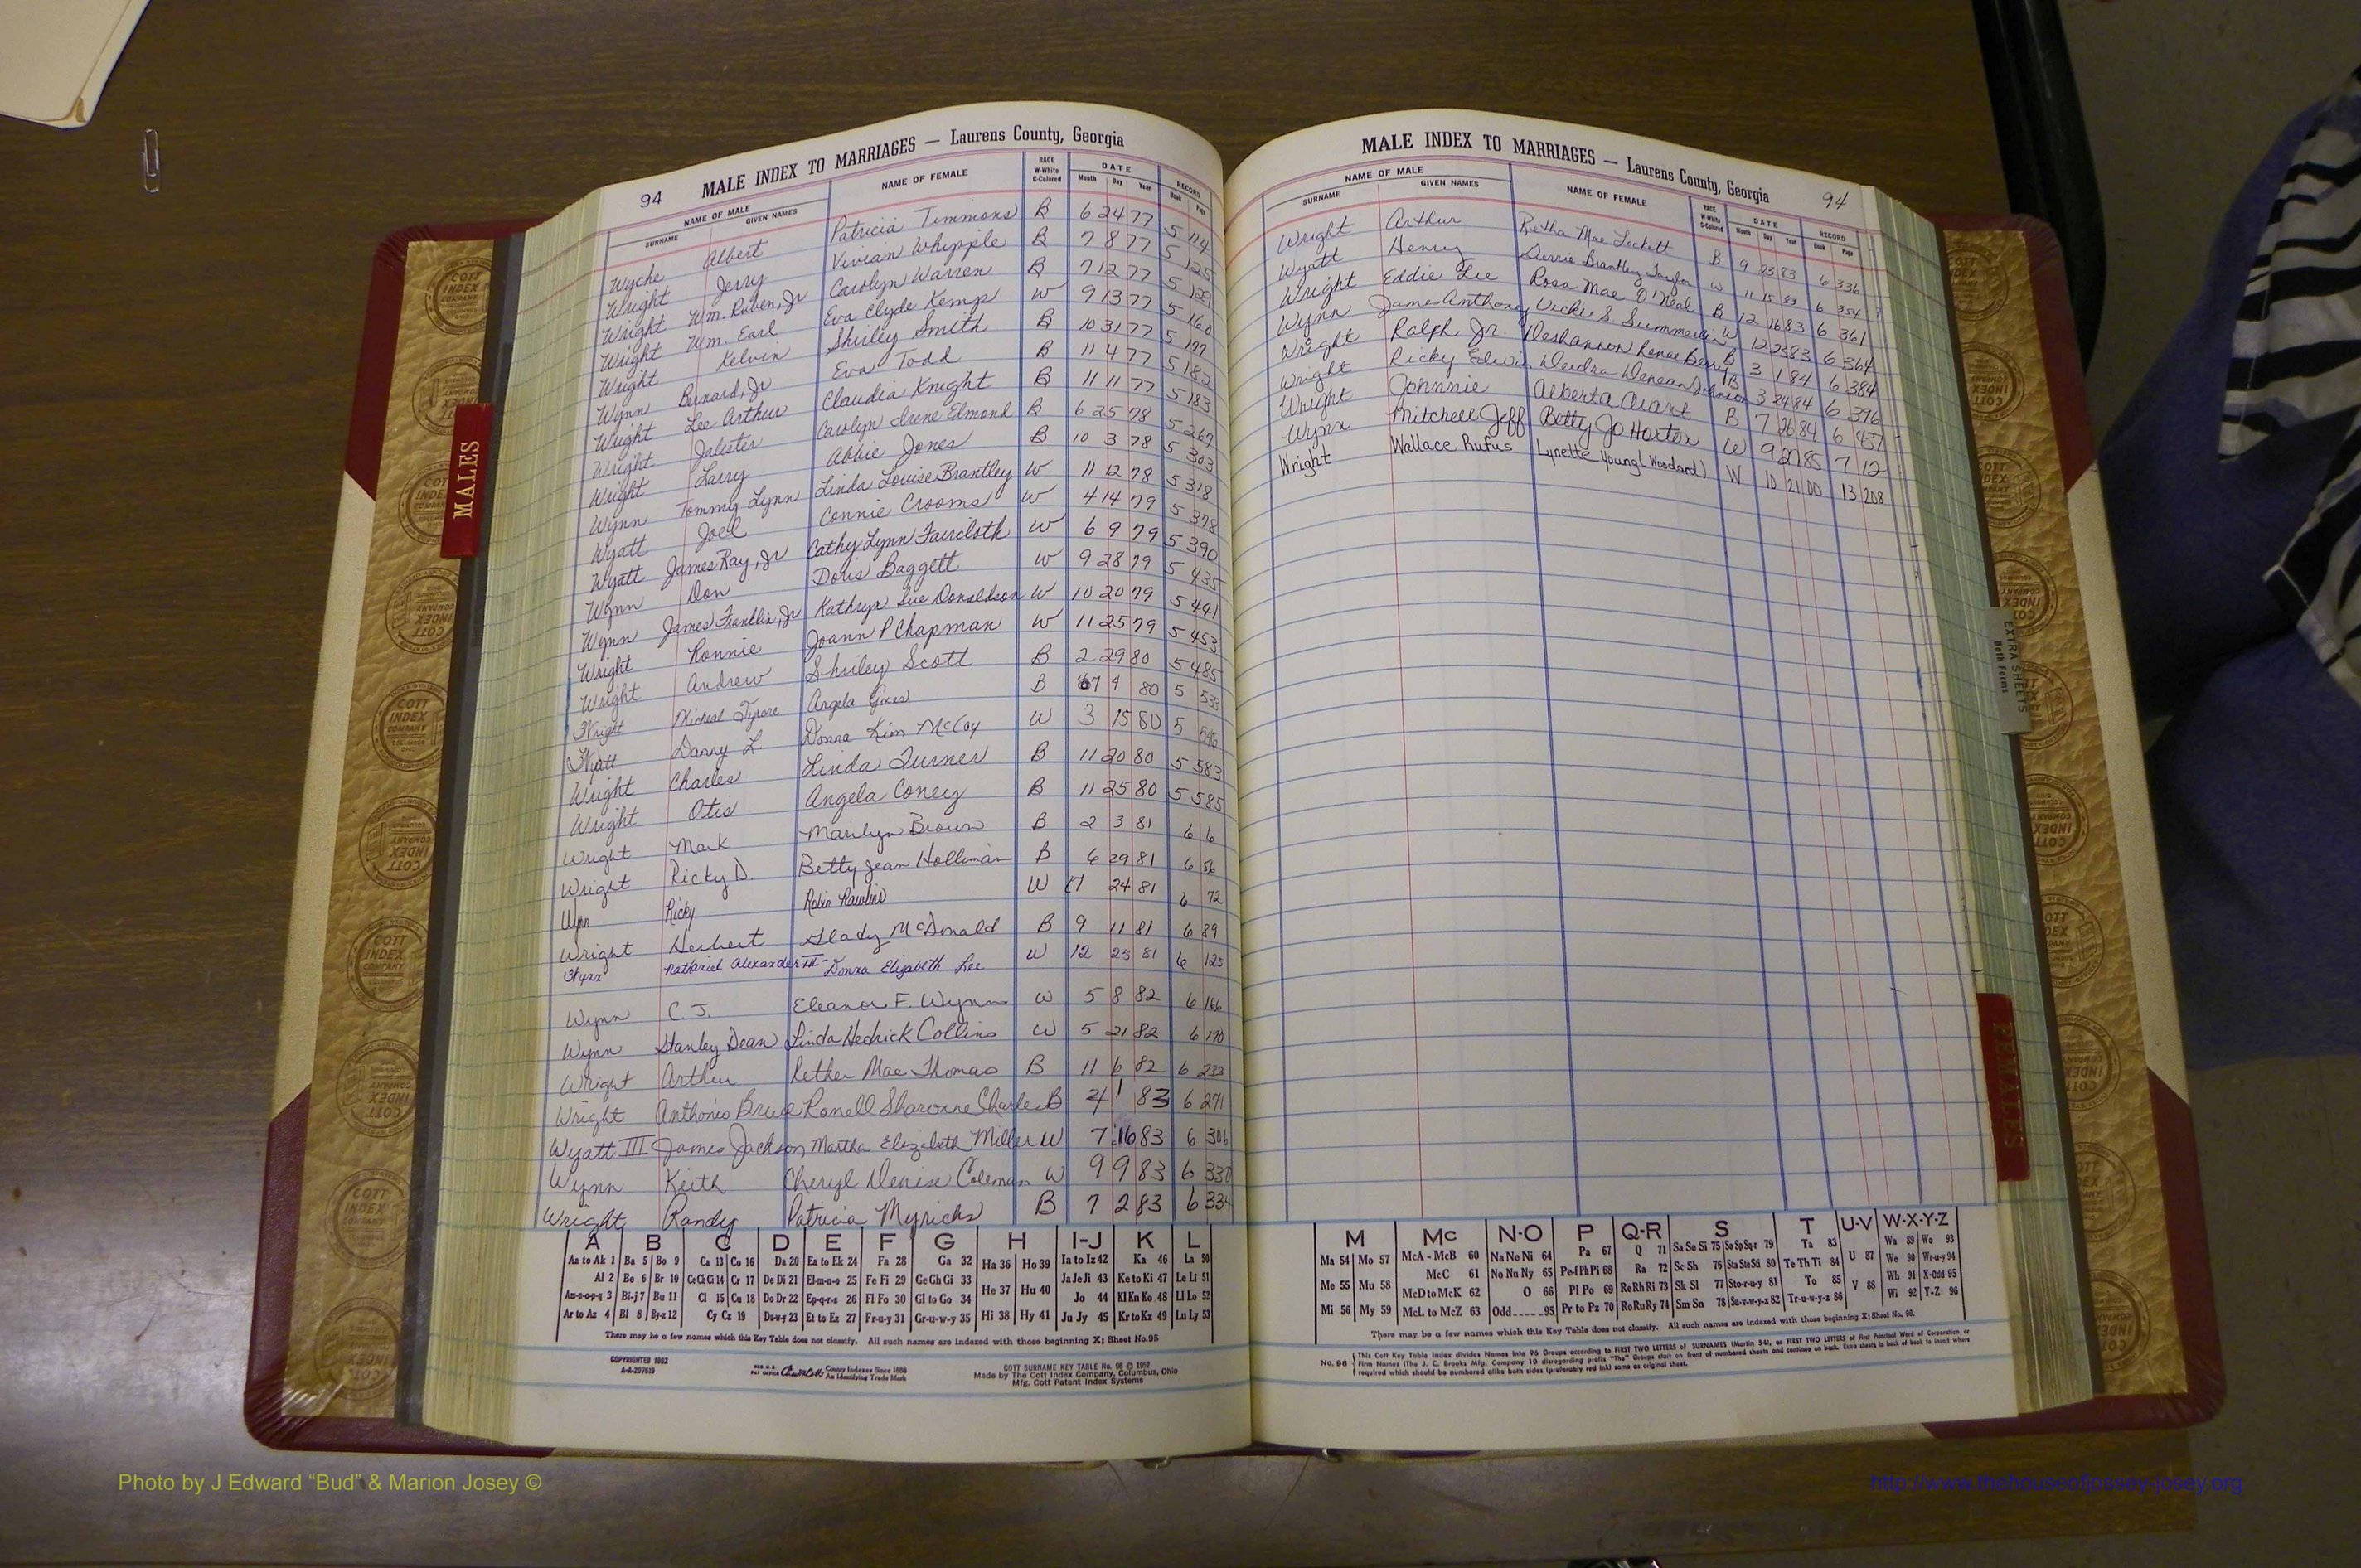 94 MALE INDEX TO MARRIAGES — Laurens County, Georgia
NAME OF MALE NAME OF FEMALE RACE W-White C-Colored DATE RECORD
SURNAME GIVEN NAMES Month Day Year Book Page
Wyche Albert Patricia Timmons B 6 24 77 5 114
Wright Jerry Vivian Whipple B 7 8 77 5 125
Wright Wm. Ruben, Jr Carolyn Warren B 7 12 77 5 129
Wright Wm. Earl Eva Clyde Kemp W 9 13 77 5 160
Wright Kelvin Shirley Smith B 10 31 77 5 177
Wynn Bernard, Jr Eva Todd B 11 4 77 5 182
Wright Lee Arthur Claudia Knight B 11 11 77 5 183
Wright Carolyn Irene Elmond B 6 25 78 5 267
Wright Larry Abbie Jones B 10 3 78 5 303
Wynn Tommy Lynn Linda Louise Brantley W 11 12 78 5 318
Wyatt Joel Connie Crooms W 4 14 79 5 378
Wyatt James Ray, Jr Cathy Lynn Faircloth W 6 9 79 5 390
Wynn Don Doris Baggett W 9 28 79 5 435
Wynn James Franklin, Jr Kathryn Sue Donaldson W 10 20 79 5 441
Wright Ronnie Joann P Chapman W 11 25 79 5 453
Wright Andrew Shirley Scott B 2 29 80 5 485
Wright Micheal Tyrone Angela B 7 4 80 5 533
Wyatt Danny L. Donna Kim McCoy W 3 15 80 5
Wright Charles Linda Turner B 11 20 80 5 583
Wright Otis Angela Coney B 11 25 80 5 585
Wright Mark Marilyn Brown B 2 3 81 6 6
Wright Ricky D. Betty Jean Holliman B 6 29 81 6 56
Wynn Ricky Robin Rawlins W 7 24 81 6 72
Wright Herbert Glady McDonald B 9 11 81 6 89
Wynn Nathaniel Alexander III Donna Elizabeth Lee W 12 25 81 6 125
Wynn C. J. Eleanor F. Wynn W 5 8 82 6 166
Wynn Stanley Dean Linda Hedrick Collins W 5 21 82 6 170
Wright Arthur Retha Mae Thomas B 11 6 82 6 233
Wright Anthonio Bruce Ranell Sharonne Charles B 4 1 83 6 271
Wyatt III James Jackson Martha Elizabeth Miller W 7 16 83 6 306
Wynn Keith Cheryl Denise Coleman W 9 9 83 6 330
Wright Randy Patricia Myricks B 7 2 83 6 334
A B C D E F G H I-J K L
Aa to Ak 1 Ba 5 Bo 9 Ca 13 Co 16 Da 20 Ea to Ek 24 Fa 28 Ga 32 Ha 36 Ho 39 Ia to Iz 42 Ka 46 La 50
Al 2 Be 6 Br 10 Ce Ch Ci 14 Cr 17 De Di 21 El-m-n-o 25 Fe Fi 29 Ge Gh Gi 33 Ho 37 Hu 40 Ja Je Ji 43 Ke to Ki 47 Le Li 51
Am-n-o-p-q 3 Bi-j 7 Bu 11 Cl 15 Cu 18 Do Dr 22 Ep-q-r-s 26 Fl Fo 30 Gl to Go 34 Jo 44 Kl Kn Ko 48 Ll Lo 52
Ar to Az 4 Bl 8 By-z 12 Cy Cz 19 Du-w-y 23 Et to Ez 27 Fr-u-y 31 Gr-u-w-y 35 Hi 38 Hy 41 Ju Jy 45 Kr to Kz 49 Lu Ly 53
There may be a few names which this Key Table does not classify. All such names are indexed with those beginning X; Sheet No. 95
COPYRIGHTED 1952
A-A-207619
County Indexes Since 1888
An Identifying Trade Mark
COTT SURNAME KEY TABLE No. 96 © 1952
Made by The Cott Index Company, Columbus, Ohio
Mfg. Cott Patent Index Systems
MALE INDEX TO MARRIAGES — Laurens County, Georgia 94
NAME OF MALE NAME OF FEMALE RACE W-White C-Colored DATE RECORD
SURNAME GIVEN NAMES Month Day Year Book Page
Wright Arthur Retha Mae Lockett B 9 23 83 6 336
Wyatt Henry Derrie Brantley Taylor W 11 15 83 6 354
Wright Eddie Lee Rosa Mae O'Neal B 12 16 83 6 361
Wynn James Anthony Vickie S Summerlin W 12 23 83 6 364
Wright Ralph Jr. Deshannon Renae Berry B 3 1 84 6 384
Wright Ricky Edwin Deidra Denean Johnson B 3 24 84 6 396
Wright Johnnie Alberta Avant B 7 26 84 6 437
Wynn Mitchell Jeff Betty Jo Horton W 9 27 85 7 12
Wright Wallace Rufus Lynette Young (Woodard) W 10 21 00 13 208
M Mc N-O P Q-R S T U-V W-X-Y-Z
Ma 54 Mo 57 McA - McB 60 Na Ne Ni 64 Pa 67 Q 71 Sa Se Si 75 So Sp Sq-r 79 Ta 83 U 87 Wa 89 Wo 93
McC 61 No Nu Ny 65 Pe-f Ph Pi 68 Ra 72 Sc Sh 76 Sta Ste Sti 80 Te Th Ti 84 We 90 Wr-u-y 94
Me 55 Mu 58 McD to McK 62 O 66 Pl Po 69 Re Rh Ri 73 Sk Sl 77 Sto-r-u-y 81 To 85 V 88 Wh 91 X-Odd 95
Mi 56 My 59 McL to McZ 63 Odd-----95 Pr to Pz 70 Ro Ru Ry 74 Sm Sn 78 Su-v-w-y-z 82 Tr-u-w-y-z 86 Wi 92 Y-Z 96
There may be a few names which this Key Table does not classify. All such names are indexed with those beginning X; Sheet No. 95.
No. 96 This Cott Key Table Index divides Names into 96 Groups according to FIRST TWO LETTERS of SURNAMES (Martin 54), or FIRST TWO LETTERS of First Principal Word of Corporation or
Firm Names (The J. C. Brooks Mfg. Company 10 disregarding prefix "The") Groups start on front of numbered sheets and continue on back. Extra sheets in back of book to insert where
required which should be numbered alike both sides (preferably red ink) same as original sheet.
MALES
FEMALES
EXTRA SHEETS
Both Forms
COTT INDEX COMPANY
Photo by J Edward “Bud” & Marion Josey ©
http://www.thehouseofjossey-josey.org